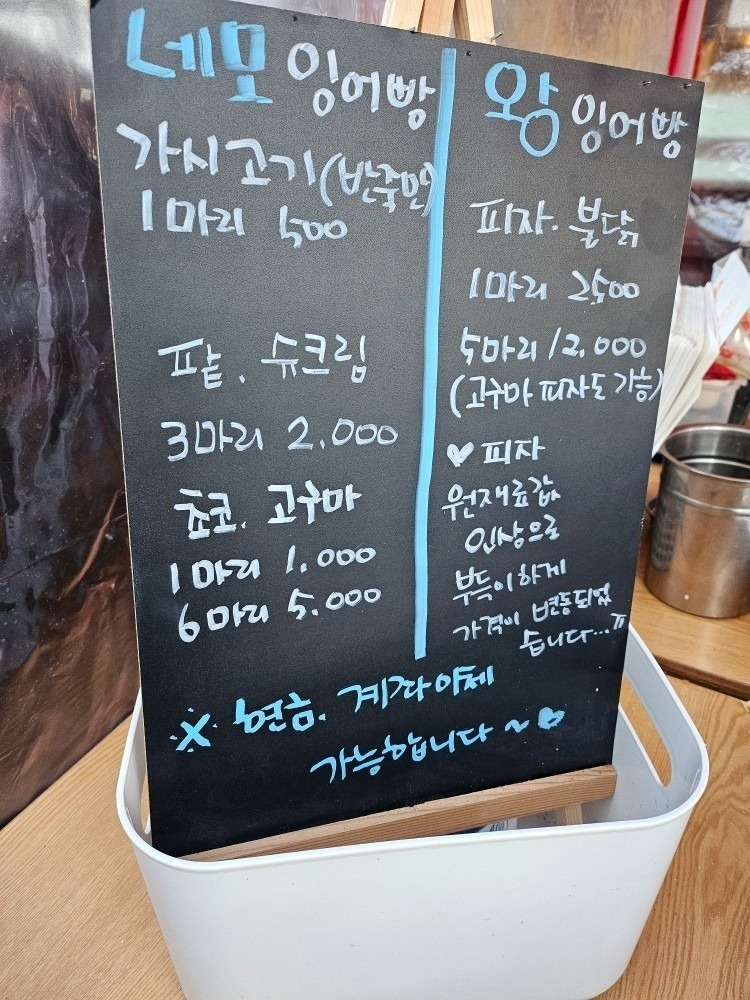 네모 잉어빵
가시고기(반죽만)
1마리 500
팥. 슈크림
3마리 2.000
쵸코. 고구마
1마리 1.000
6마리 5.000
왕 잉어빵
피자. 불닭
1마리 2500
5마리 12.000
(고구마 피자도 가능)
♥ 피자
원재료값
인상으로
부득이하게
가격이 변동되었
습니다...ㅠ
※ 현금. 계좌이체
가능합니다~♥